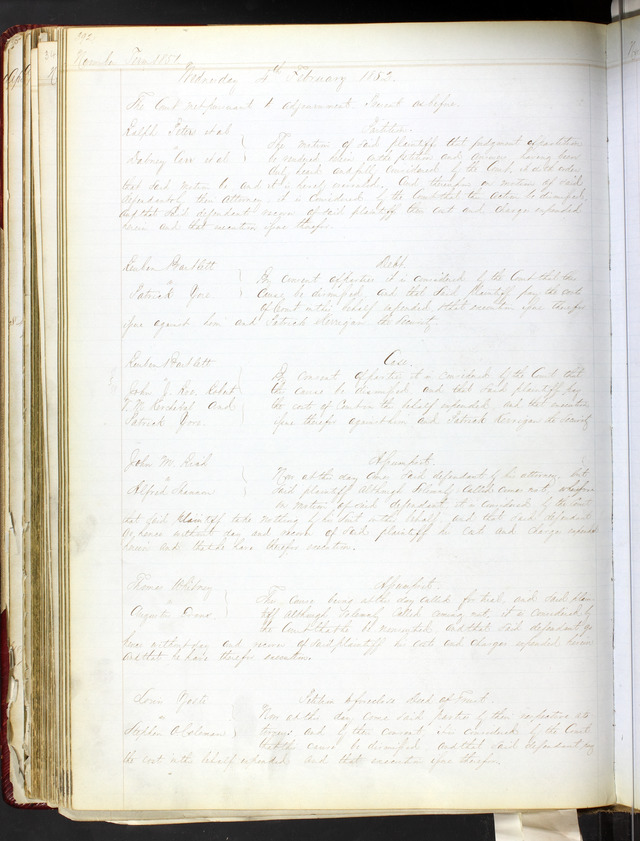 392
November Term 1851
Wednesday 4th February 1852
The Court met pursuant to adjournment. Present as before.
Ralph Peter et al Petition
vs The motion of said plaintiff that judgment
Dabney Carr et al be rendered herein on the petition and answer having been
duly heard and fully considered by the Court, it is ordered
that said motion be and it is hereby overruled. And thereupon on motion of said
defendants by their attorney it is considered by the Court that this action be dismissed,
and that said defendants recover of said plaintiff their costs and charges expended
herein and that execution issue therefor.
Reuben Bartlett Debt
vs By consent of parties it is considered by the Court that this
Patrick Gore. cause be dismissed, and that said Plaintiff pay the costs
of Court in this behalf expended & that execution issue therefor
issue against him and Patrick Kerrigan his security.
Reuben Bartlett Case.
vs By consent of parties it is considered by the Court that
John J. Roe, Robert the cause be dismissed and that said plaintiff pay
and the costs of Court in this behalf expended, and that execution
Patrick Gore. issue therefor against him and Patrick Kerrigan his security
John M. Assumpsit.
vs Now at this day comes said defendant by his attorney, but
Alfred said plaintiff although solemnly called comes not, wherefore
on motion of said defendant it is considered by the Court
that said plaintiff take nothing by his suit in this behalf and that said defendant
go hence without day and recover of said plaintiff his costs and charges expended
herein and that he have therefor execution.
Thomas Whitney Assumpsit.
vs This cause being at this day called for trial and said plain-
tiff although solemnly called coming not, it is considered by
the Court that he be nonsuited, and that said defendant go
hence without day and recover of said plaintiff his costs and charges expended herein
and that he have therefor execution.
Louis Petition to foreclose Deed of Trust.
vs Now at this day come said parties by their respective at-
Stephen Coleman torneys and by their consent it is considered by the Court
that this cause be dismissed and that said defendant pay
the costs in this behalf expended and that execution issue therefor.